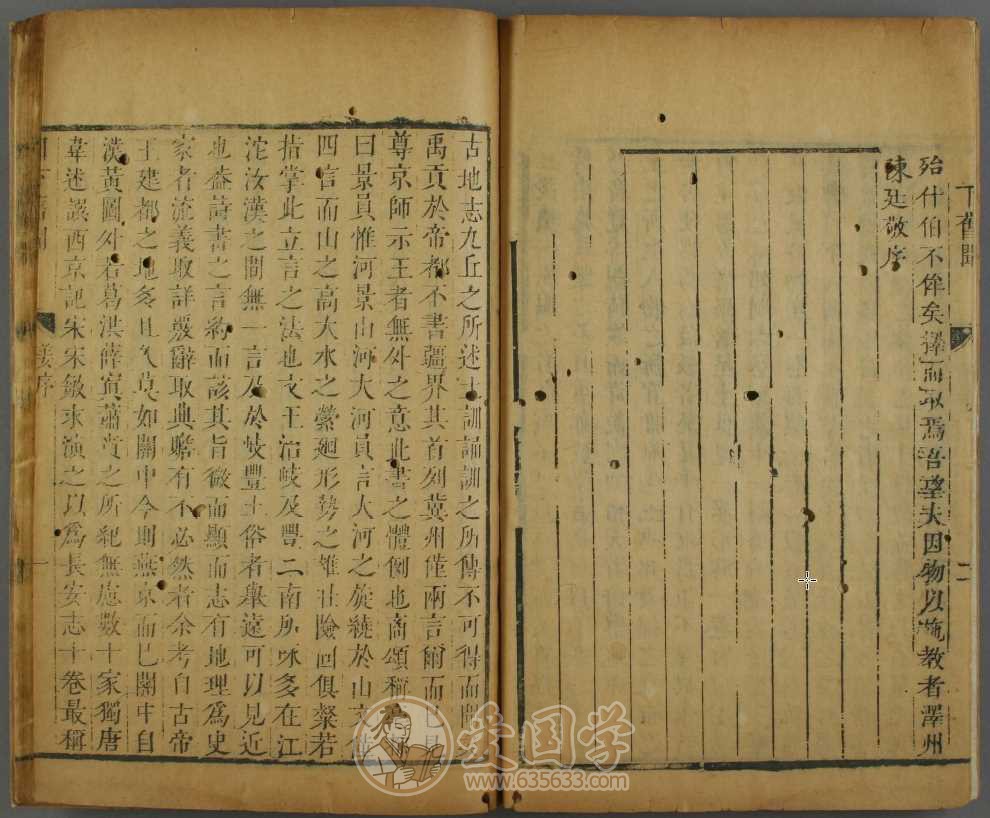 下舊聞
二
殆什伯不侔矣譯而取焉吾望夫因物以施教者澤州
陳廷敬序
古地志九丘之所述土訓誦訓之所傳不可得而
禹貢於帝都不書疆界其首列冀州僅兩言爾而已
尊京師示王者無外之意此書之體例也商頌稱
曰景員惟河景山河大河員言大河之旋繞於山文
四言而山之高大水之縈迴形勢之雄壯險固俱粲若
指掌此立言之法也文王治岐及豐二南所咏多在江
沱汝漢之間無一言及於岐豐土俗者舉遠可以見近
也蓋詩書之言約而該其旨微而顯而志有地理爲史
家者流義取詳覈辭取典贍有不必然者余考自古帝
王建都之地多且久莫如關中今則燕京而已關中自
漢黃圖外若葛洪薛寘蕭賁之所紀無慮數十家獨唐
韋述譔西京記宋宋敏求演之以爲長安志十卷最稱
姜序
一
爱国学
www.635633.com